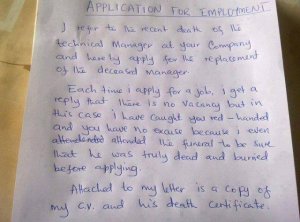 APPLICATION FOR EMPLOYMENT
I refer to the recent death of the
technical Manager at your Company
and hereby apply for the replacement
of the deceased manager.
Each time i apply for a job, i get a
reply that there is no vacancy but in
this case i have caught you red-handed
and you have no excuse because i even
attended the funeral to be sure
that he was truly dead and buried
before applying.
Attached to my letter is a copy of
my C.V. and his death certificate.